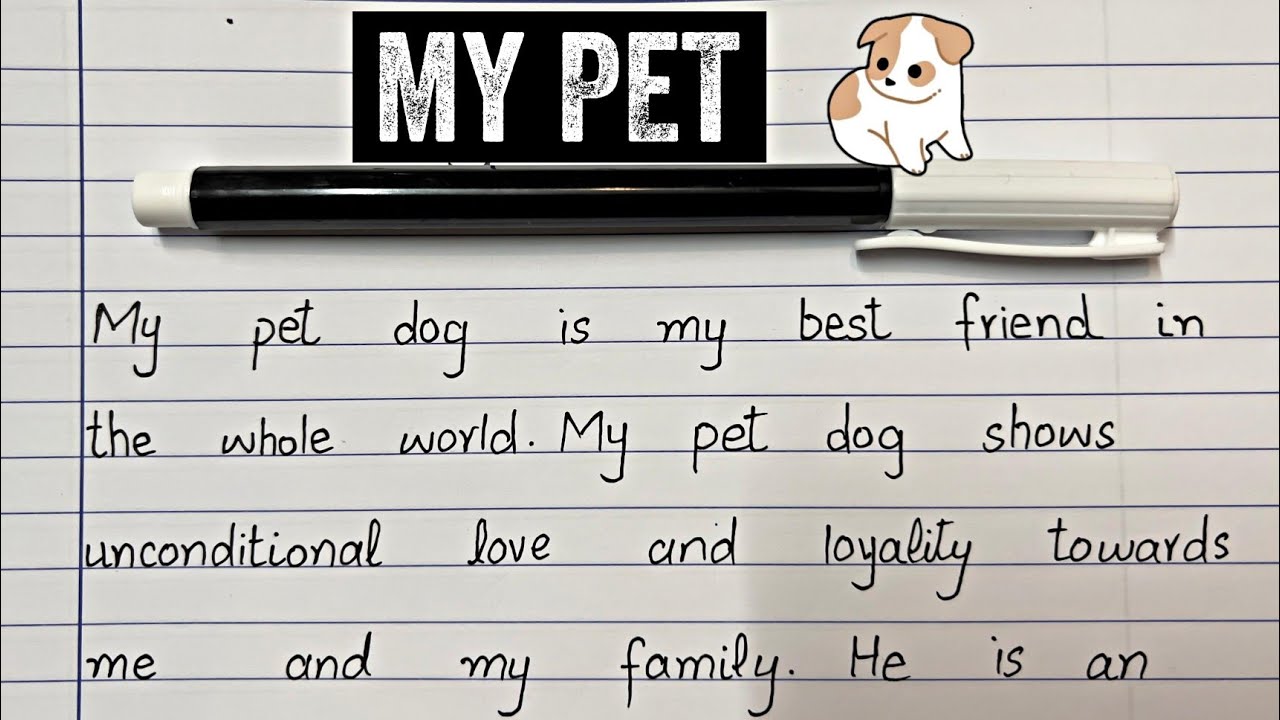 MY PET
My pet dog is my best friend in
the whole world. My pet dog shows
unconditional love and loyality towards
me and my family. He is an